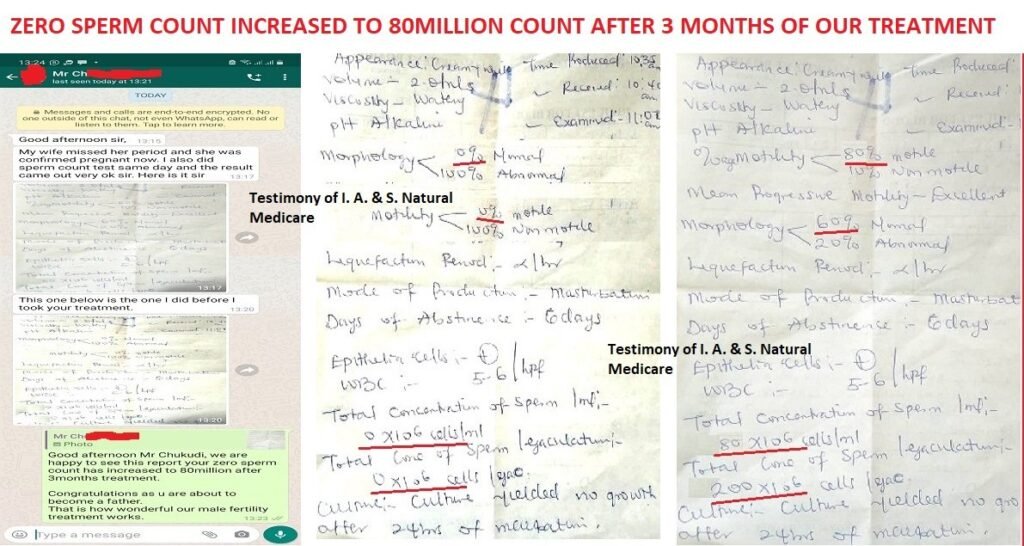 ZERO SPERM COUNT INCREASED TO 80MILLION COUNT AFTER 3 MONTHS OF OUR TREATMENT
13:24
Mr Ch
last seen today at 13:21
TODAY
Messages and calls are end-to-end encrypted. No
one outside of this chat, not even WhatsApp, can read or
listen to them. Tap to learn more.
Good afternoon sir,
13:15
My wife missed her period and she was
confirmed pregnant now. I also did
sperm count test same day and the result
came out very ok sir. Here is it sir
13:17
13:17
This one below is the one I did before I
took your treatment.
13:20
13:20
Mr Ch
Photo
Good afternoon Mr Chukudi, we are
happy to see this report your zero sperm
count has increased to 80million after
3months treatment.
Congratulations as u are about to
become a father.
That is how wonderful our male fertility
treatment works.
13:23
Type a message
Testimony of I. A. & S. Natural
Medicare
Appearance: Creamy Time Produced: 10:35
Volume - 2.0mls Received: 10:40
am
Viscosity - Watery
Examined - 11:00
am
pH Alkaline
Morphology 0% Normal
100% Abnormal
Motility 0% motile
100% Non motile
Liquefaction Period:- <1hr
Mode of Production:- Masturbation
Days of Abstinence:- 6days
Epithelia cells:- +
WBC:- 5-6/hpf
Total Concentration of Sperm /ml:-
0x106 cells/ml
Total Conc of Sperm /ejaculatum:-
0x106 cells/ejac.
Culture:- Culture yielded no growth
after 24hrs of incubation.
Testimony of I. A. & S. Natural
Medicare
Appearance: Creamy Time Produced:
Volume - 2.0mls Received:
Viscosity - Watery
Examined - 11:0
pH Alkaline
Motility 80% motile
10% Non motile
Mean Progressive Motility - Excellent
Morphology 60% Normal
20% Abnormal
Liquefaction Period:- <1hr
Mode of Production:- Masturbat
Days of Abstinence:- 6days
Epithelia cells:- +
WBC:- 5-6/hpf
Total Concentration of Sperm /ml:-
80x106 cells/ml
Total Conc of Sperm /ejaculatum:-
200x106 cells/ejac.
Culture:- Culture yielded no gro
after 24hrs of incubation.